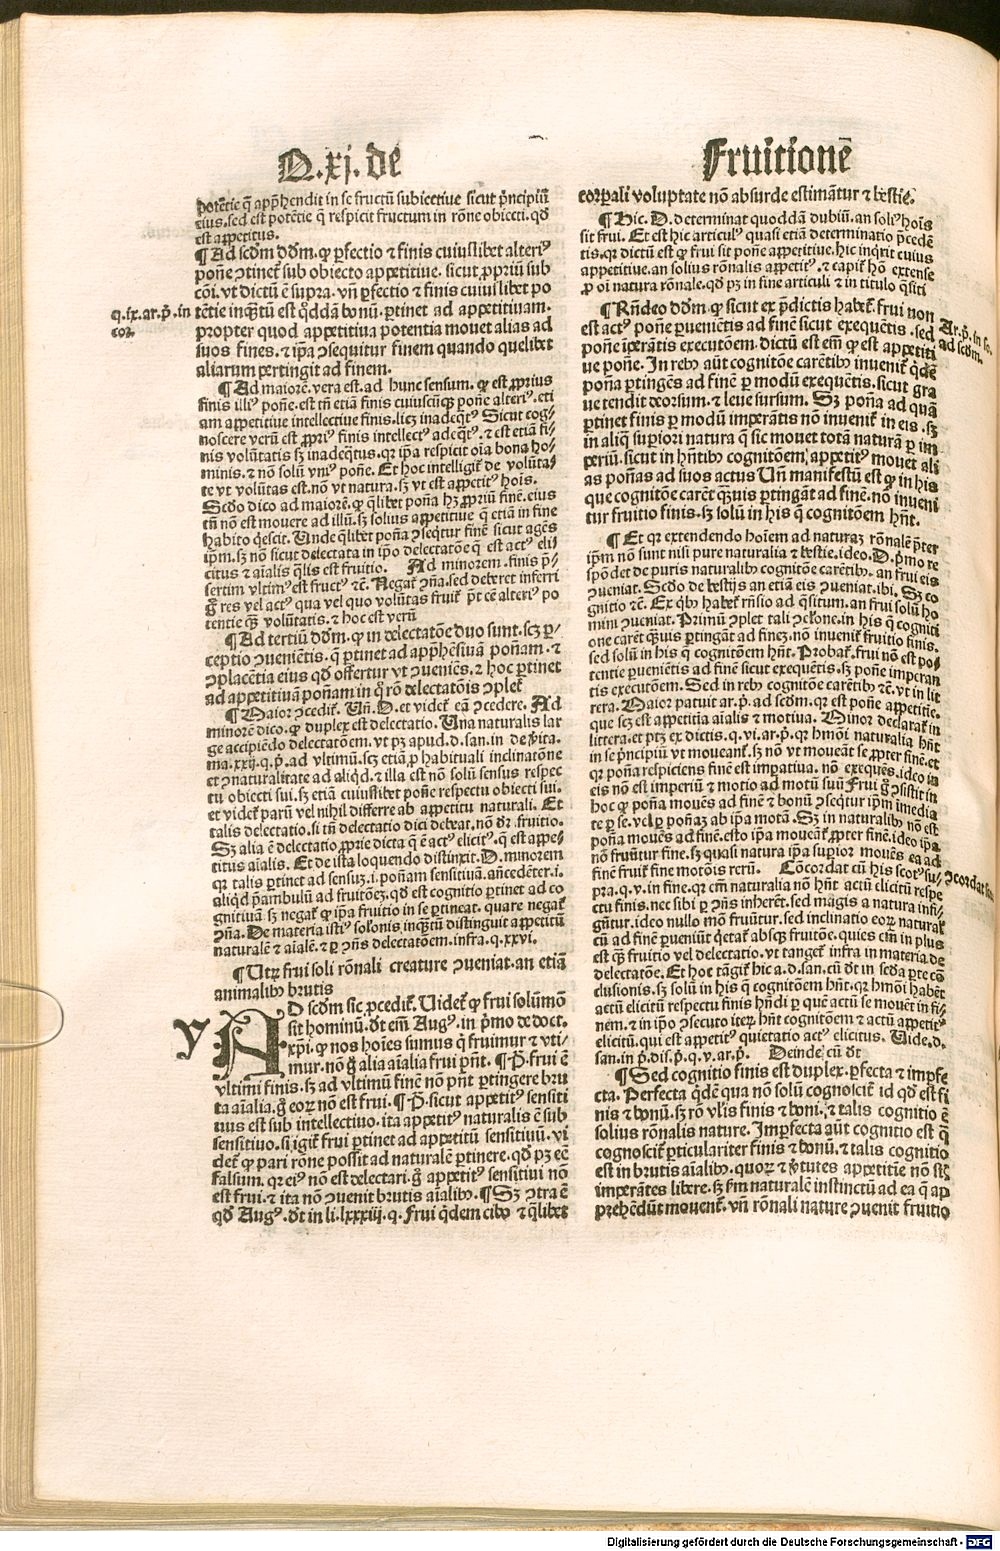 Q.xj. de
Fruitionē
potētie q̄ apphendit in se fructū subiectiue sicut p̄ncipiū
eius. sed est potētie q̄ respicit fructum in rōne obiecti. qd̄
est appetitus.
¶ Ad scdm̄ dd̄m. ꝙ pfectio ⁊ finis cuiuslibet alteriꝰ
poñe ꝯtinet̄ sub obiecto appetitiue. sicut ꝓpriū sub
cōi. vt dictū ē supra. vn̄ pfectio ⁊ finis cuiuslibet po
tētie inqͣtū est qͦddā bonū. ꝑtinet ad appetitiuam.
propter quod appetitiua potentia mouet alias ad
suos fines. ⁊ ip̄a ꝯsequitur finem quando quelibet
aliarum pertingit ad finem.
q. ix. ar. p̄. in
cor.
¶ Ad maiorē. vera est. ad hunc sensum. ꝙ est ꝓprius
finis illiꝰ poñe. est tñ etiā finis cuiuscūqꝫ poñe alteriꝰ. eti
am appetitiue intellectiue finis. licꝫ inadeq̄tꝰ. Sicut cog-
noscere verū est ꝓpriꝰ finis intellectꝰ adeq̄tꝰ. ⁊ est etiā fi-
nis volūtatis sꝫ inadeq̄tus. qꝛ ip̄a respicit oīa bona ho-
minis. ⁊ nō solū vniꝰ poñe. Et hoc intelligit̄ de volūta-
te vt volūtas est. nō vt natura. sꝫ vt est appetitꝰ hoīs.
Scd̄o dico ad maiorē. ꝙ q̄libet poña hꝫ ꝓpriū finē. eius
tñ nō est mouere ad illū. sꝫ solius appetitiue q̄ etiā in fine
habito q̄escit. Unde q̄libet poña ꝯseqt̄ur finē sicut agēs
ip̄m. sꝫ nō sicut delectata in ip̄o delectatōe q̄ est actꝰ eli
citus ⁊ aīalis q̄lis est fruitio. Ad minorem. finis p̄-
sertim vltimꝰ est fructꝰ ⁊c̄. Negat̄ ꝯña. sed deberet inferri
g̊ res vel actꝰ qua vel quo volūtas fruit̄ p̄t cē alteriꝰ po
tentie qͣꝫ volūtatis. ⁊ hoc est verū
¶ Ad tertiū dd̄m. ꝙ in delectatōe duo sunt. scꝫ ꝑ-
ceptio ꝯueniētis. q̄ ꝑtinet ad apphēsiuā poñam. ⁊
ꝯplacētia eius qd̄ offertur vt ꝯueniēs. ⁊ hoc ꝑtinet
ad appetitiuā poñam in qͦ rō delectatōis ꝯplet̄
¶ Maior ꝯcedit̄. Uñ. D. et videt̄ eā ꝯcedere. Ad
minorē dico. ꝙ duplex est delectatio. Una naturalis lar
ge accipiēdo delectatōem. vt pꝫ apud. d. san. in de v̄ita.
ma. xxij. q. p̄. ad vltimū. scꝫ etiā ꝑ habituali inclinatōne
et ꝯnaturalitate ad aliqd. ⁊ illa est nō solū sensus respec
tu obiecti sui. sꝫ etiā cuiuslibet poñe respectu obiecti sui.
et videt̄ parū vel nihil differre ab appetitu naturali. Et
talis delectatio. si tñ delectatio dici debeat. nō dr̄ .fruitio.
Sꝫ alia ē delectatio ꝓprie dicta q̄ ē actꝰ elicitꝰ. q̄ est appe-
titus aīalis. Et de ista loquendo distinxit. D. minorem
qꝛ talis ꝑtinet ad sensuꝫ. i. poñam sensitiuā. añcedēter. i.
aliqd p̄ambulū ad fruitōeꝫ. qd̄ est cognitio ꝑtinet ad co
gnitiuā sꝫ negat̄ ꝙ ip̄a fruitio in se ꝑtineat. quare negat̄
ꝯña. De materia istiꝰ solōnis inqͣtū distinguit appetitū
naturalē ⁊ aīalē. ⁊ ꝑ ꝯñs delectatōem. infra. q. xxvi.
¶ Utꝛ frui soli rōnali creature ꝯueniat. an etiā
animalibꝰ brutis
y
AD scdm̄ sic ꝓcedit̄. Videt̄ ꝙ frui solūmō
sit hominū. dr̄t em̄ Augꝰ. in p̄mo de doct.
xp̄i. ꝙ nos hoīes sumus q̄ fruimur ⁊ vti-
mur. nō g̊ alia aīalia frui p̄nt. ¶ P. frui ē
vltimi finis. sꝫ ad vltimū finē nō p̄nt ꝑtingere bru
ta aīalia. g̊ eoꝝ nō est frui. ¶ P. sicut appetitꝰ sensiti
uus est sub intellectiuo. ita appetitꝰ naturalis ē sub
sensitiuo. si igit̄ frui ꝑtinet ad appetitū sensitiuū. vi
det̄ ꝙ pari rōne possit ad naturalē ꝑtinere. qd̄ pꝫ eē
falsum. qꝛ eiꝰ nō est delectari. g̊ appetitꝰ sensitiui nō
est frui. ⁊ ita nō ꝯuenit brutis aīalibꝰ. ¶ Sꝫ ꝯtra ē
qd̄ Augꝰ. dr̄t in li. lxxxiij. q. Frui q̄dem cibo ⁊ q̄libet
corꝑali voluptate nō absurde estimātur ⁊ bestie.
¶ Hic. D. determinat quoddā dubiū. an soliꝰ hoīs
sit frui. Et est hic articulꝰ quasi etiā determinatio p̄cedē
tis. qꝛ dictū est ꝙ frui sit poñe appetitiue. hic inq̄rit cuius
appetitiue. an solius rōnalis appetitꝰ. ⁊ capit̄ hō extense
ꝓ oī natura rōnale. qd̄ pꝫ in fine articuli ⁊ in titulo q̄siti
¶ Rñdeo dd̄m ꝙ sicut ex p̄dictis habet̄. frui non
est actꝰ poñe ꝑueniētis ad finē sicut exequētis. sed
poñe iperātis executōem. dictū est em̄ ꝙ est appetiti
ue poñe. In rebꝰ aūt cognitōe carētibꝰ inuenit̄ q̄dē
poña ꝑtingēs ad finē ꝑ modū exequētis. sicut gra
ue tendit deorsum. ⁊ leue sursum. Sꝫ poña ad quā
ꝑtinet finis ꝑ modū imperātis nō inuenit̄ in eis. sꝫ
in aliq̄ supiori natura q̄ sic mouet totā naturā ꝑ im
periū. sicut in hñtibꝰ cognitōem. appetitꝰ mouet ali
as poñas ad suos actus Uñ manifestū est ꝙ in his
que cognitōe carēt qͣuis ꝑtingāt ad finē. nō inueni
tur fruitio finis. sꝫ solū in his q̄ cognitōem hñt.
Ar. p̄. in se.
ad scdm.
¶ Et qꝛ extendendo hoīem ad naturaꝫ rōnalē p̄ter
ip̄m nō sunt nisi pure naturalia ⁊ bestie. ideo. D. p̄mo re
spōdet de puris naturalibꝰ cognitōe carētibꝰ. an frui eis
ꝯueniat. Scd̄o de bestijs an etiā eis ꝯueniat. ibi. Sꝫ co
gnitio ⁊c̄. Ex qͥbꝰ habet̄ rñsio ad q̄situm. an frui solū ho
mini ꝯueniat. Primū ꝯplet tali ꝯcl̄one. in his q̄ cogniti
one carēt qͣuis ꝑtingāt ad fineꝫ. nō inuenit̄ fruitio finis.
sed solū in his q̄ cognitōem hñt. Probat̄. frui nō est po-
tentie ꝑueniētis ad finē sicut exequētis. sꝫ poñe imperan
tis executōem. Sed in rebꝰ cognitōe carētibꝰ ⁊c̄. vt in lit
tera. Maior patuit ar. p̄. ad scdm. qꝛ est poñe appetitie.
que scꝫ est appetitia aīalis ⁊ motiua. Minor declarat̄ in
littera. et ptꝫ ex dictis. q. vi. ar. p̄. qꝛ hmōi naturalia hñt
in se p̄ncipiū vt moueant̄. sꝫ nō vt moueāt se ꝓpter finē. et
qꝛ poña respiciens finē est imꝑatiua. nō exequēs. ideo in
eis nō est imperiū ⁊ motio ad motū suū Frui g̊ ꝯsistit in
hoc ꝙ poña mouēs ad finē ⁊ bonū ꝯseqt̄ur ip̄m imedia
te ꝑ se. vel ꝑ poñaꝫ ab ip̄a motā. Sꝫ in naturalibꝰ nō est
poña mouēs ad finē. esto ip̄a moueat̄ ꝓpter finē. ideo ip̄a
nō fruūtur fine. sꝫ quasi natura ip̄a supior mouēs ea ad
finē fruit̄ fine motōis rerū. Cōcordat cū his scotꝰ su-
pra. q. v. in fine. qꝛ cm̄ naturalia nō hñt actū elicitū respe
ctu finis. nec sibi ꝑ ꝯñs inherēt. sed magis a natura infi-
gūtur. ideo nullo mō fruūtur. sed inclinatio eoꝝ natural̄
cū ad finē ꝑueniūt q̄etat̄ absqꝫ fruitōe. quies em̄ in plus
est qͣꝫ fruitio vel delectatio. vt tanget̄ infra in materia de
delectatōe. Et hoc tāgit̄ hic a. d. san. cū dr̄t in scd̄a ꝑte cō
clusionis. sꝫ solū in his q̄ cognitōem hñt. qꝛ hmōi habēt
actū elicitū respectu finis hñdi ꝑ quē actū se mouēt in fi-
nem. ⁊ in ip̄o ꝯsecuto iteꝝ hñt cognitōem ⁊ actū appetitꝰ
elicitū. qui est appetitꝰ quietatio actꝰ elicitus. Uide. d.
san. in p̄. dis. p̄. q. v. ar. p̄. Deinde cū dr̄t
ꝯcordat
¶ Sed cognitio finis est duplex. ꝑfecta ⁊ impfe
cta. Perfecta q̄dē qua nō solū cognoscit̄ id qd̄ est fi
nis ⁊ bonū. sꝫ rō vl̄is finis ⁊ boni. ⁊ talis cognitio ē
solius rōnalis nature. Imꝑfecta aūt cognitio est q̄
cognoscit̄ ꝑticulariter finis ⁊ bonū. ⁊ talis cognitio
est in brutis aīalibꝰ. quoꝝ ⁊ v̄tutes appetitie nō sūt
imperātes libere. sꝫ ꝼm naturalē instinctū ad ea q̄ ap
prehendūt mouent̄. vñ rōnali nature ꝯuenit fruitio
Digitalisierung gefördert durch die Deutsche Forschungsgemeinschaft - DFG